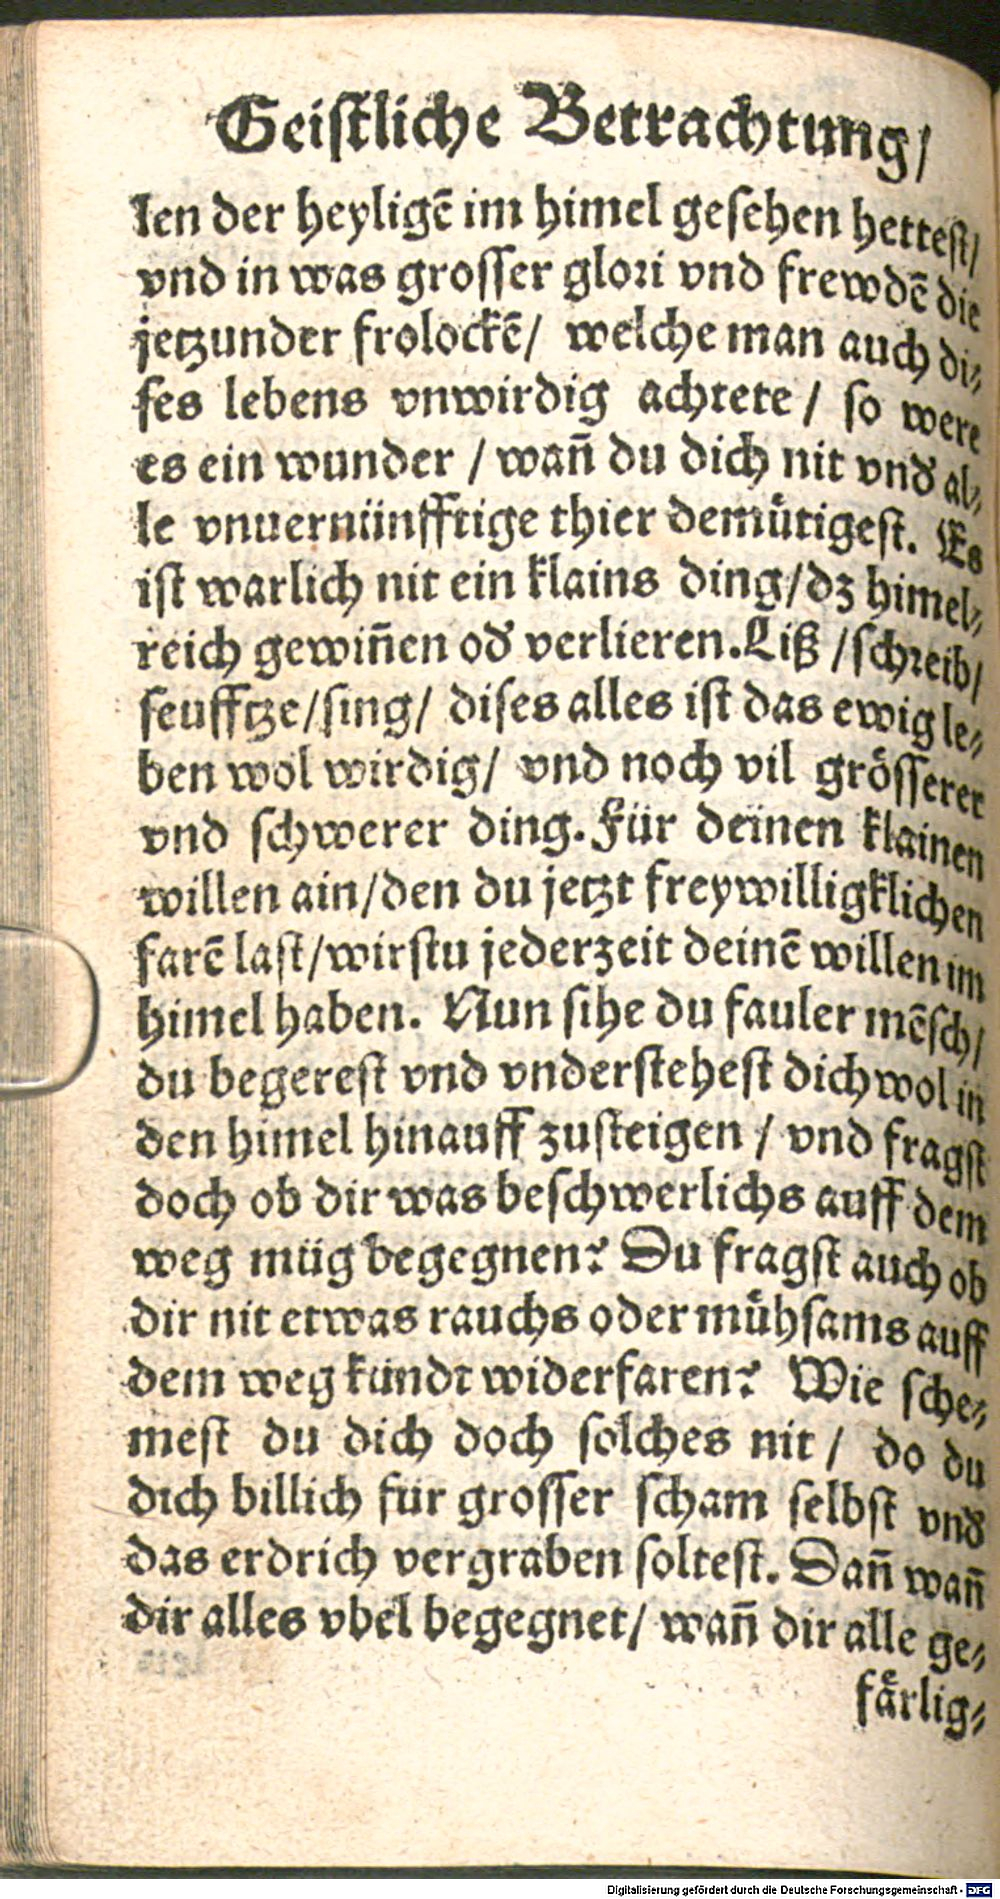 Geistliche Betrachtung/
len der heyligẽ im himel gesehen hettest/
vnd in was grosser glori vnd frewdẽ die
jetzunder frolockẽ/ welche man auch di⸗
ses lebens vnwirdig achtete / so were
es ein wunder / wañ du dich nit vnd̕ al⸗
le vnuernünfftige thier demuͤtigest. Es
ist warlich nit ein klains ding/dz himel⸗
reich gewiñen od̕ verlieren. Liß /schreib/
seufftze/sing/ dises alles ist das ewig le⸗
ben wol wirdig/ vnd noch vil groͤsserer
vnd schwerer ding. Für deinen klainen
willen ain/den du jetzt freywilligklichen
farẽ last/wirstu jederzeit deinẽ willen im
himel haben. Nun sihe du fauler mẽsch/
du begerest vnd vnderstehest dich wol in
den himel hinauff zusteigen / vnd fragst
doch ob dir was beschwerlichs auff dem
weg müg begegnen? Du fragst auch ob
dir nit etwas rauchs oder muͤhsams auff
dem weg kundt widerfaren? Wie sche⸗
mest du dich doch solches nit / do du
dich billich für grosser scham selbst vnd̕
das erdrich vergraben soltest. Dañ wañ
dir alles vbel begegnet/ wañ dir alle ge⸗
faͤrlig⸗
Digitalisierung gefördert durch die Deutsche Forschungsgemeinschaft - DFG